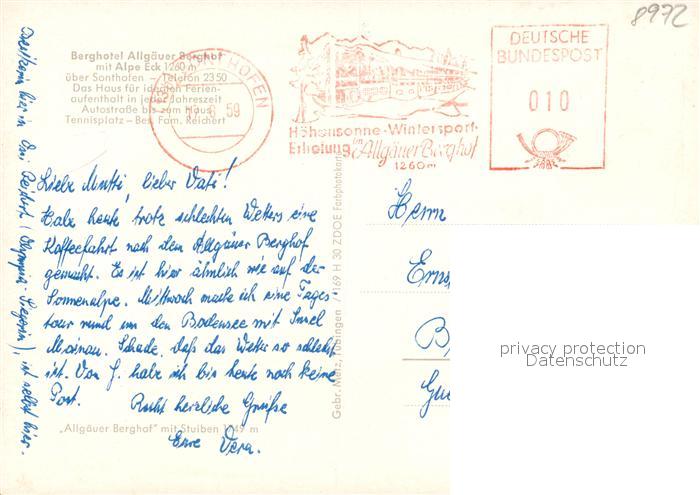 8972
Berghotel Allgäuer Berghof
mit Alpe Eck 1260 m
über Sonthofen – Telefon 2350
Das Haus für idealen Ferien-
aufenthalt in jeder Jahreszeit
Autostraße bis zum Haus
Tennisplatz – Bes. Fam. Reichert
SONTHOFEN
59
Höhensonne-Wintersport-
Erholung im Allgäuer Berghof
1260 m
DEUTSCHE
BUNDESPOST
010
Liebe Mutti, lieber Vati!
Habe heute trotz schlechten Wetters eine
Kaffeefahrt nach dem Allgäuer Berghof
gemacht. Es ist hier ähnlich wie auf der
Sonnenalpe. Mittwoch mache ich eine Tages-
tour rund um den Bodensee mit Insel
Mainau. Schade, daß das Wetter so schlecht
ist. Von J. habe ich bis heute noch keine
Post. Recht herzliche Grüße
Eure Vera.
hier in Ossi Reichert (Olympia-Siegerin), ist selbst hier.
„Allgäuer Berghof" mit Stuiben 1749 m
Gebr. Metz, Tübingen / 169 H 30 ZDDE Farbphotokarte
Herrn
Erns
B
Gu
privacy protection
Datenschutz